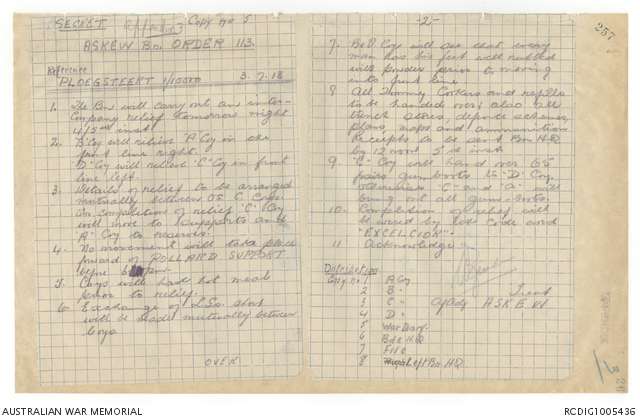 SECRET Copy No 5
ASKEW Bn. ORDER 113.
Reference
PLOEGSTEERT 1/10000 3.7.18
1. The Bn will carry out an inter-
Company relief tomorrow night
4/5th inst
2. "B" Coy will relieve "A" Coy in the
front line right.
"D" Coy will relieve "C" Coy in front
line left.
3. Details of relief to be arranged
mutually between Os C Coys.
On completion of relief "C" Coy
will move to Supports and
"A" Coy to reserve.
4. No movement will take place
forward of POLLARD SUPPORT
before
5. Coys will have hot meal
prior to relief.
6. Exchange of L.G. will be made mutually between
Coys
OVER
-2-
257
7. B & D Coys will see that every
man has his feet well rubbed
with powder prior to moving
into front line.
8. All Tommy Cookers and refills
to be handed over; also all
trench stores, defence schemes,
plans, maps and ammunition.
Receipts to be sent Bn H.Q.
by 12 noon 5th inst
9. "C" Coy will hand over 65
pairs gumboots to "D" Coy,
otherwise "C" and "A" will
bring out all gum-boots.
10. Completion of relief will
be wired by code word
"EXCELSIOR".
11. Acknowledge
Lieut
A/Adj ASKEW
Distribution
Copy No. 1 A Coy
2 B "
3 C "
4 D "
5 War Diary
6 Bde H.Q
7 File
8 Left Bn. HQ
AUSTRALIAN WAR MEMORIAL
RCDIG1005436